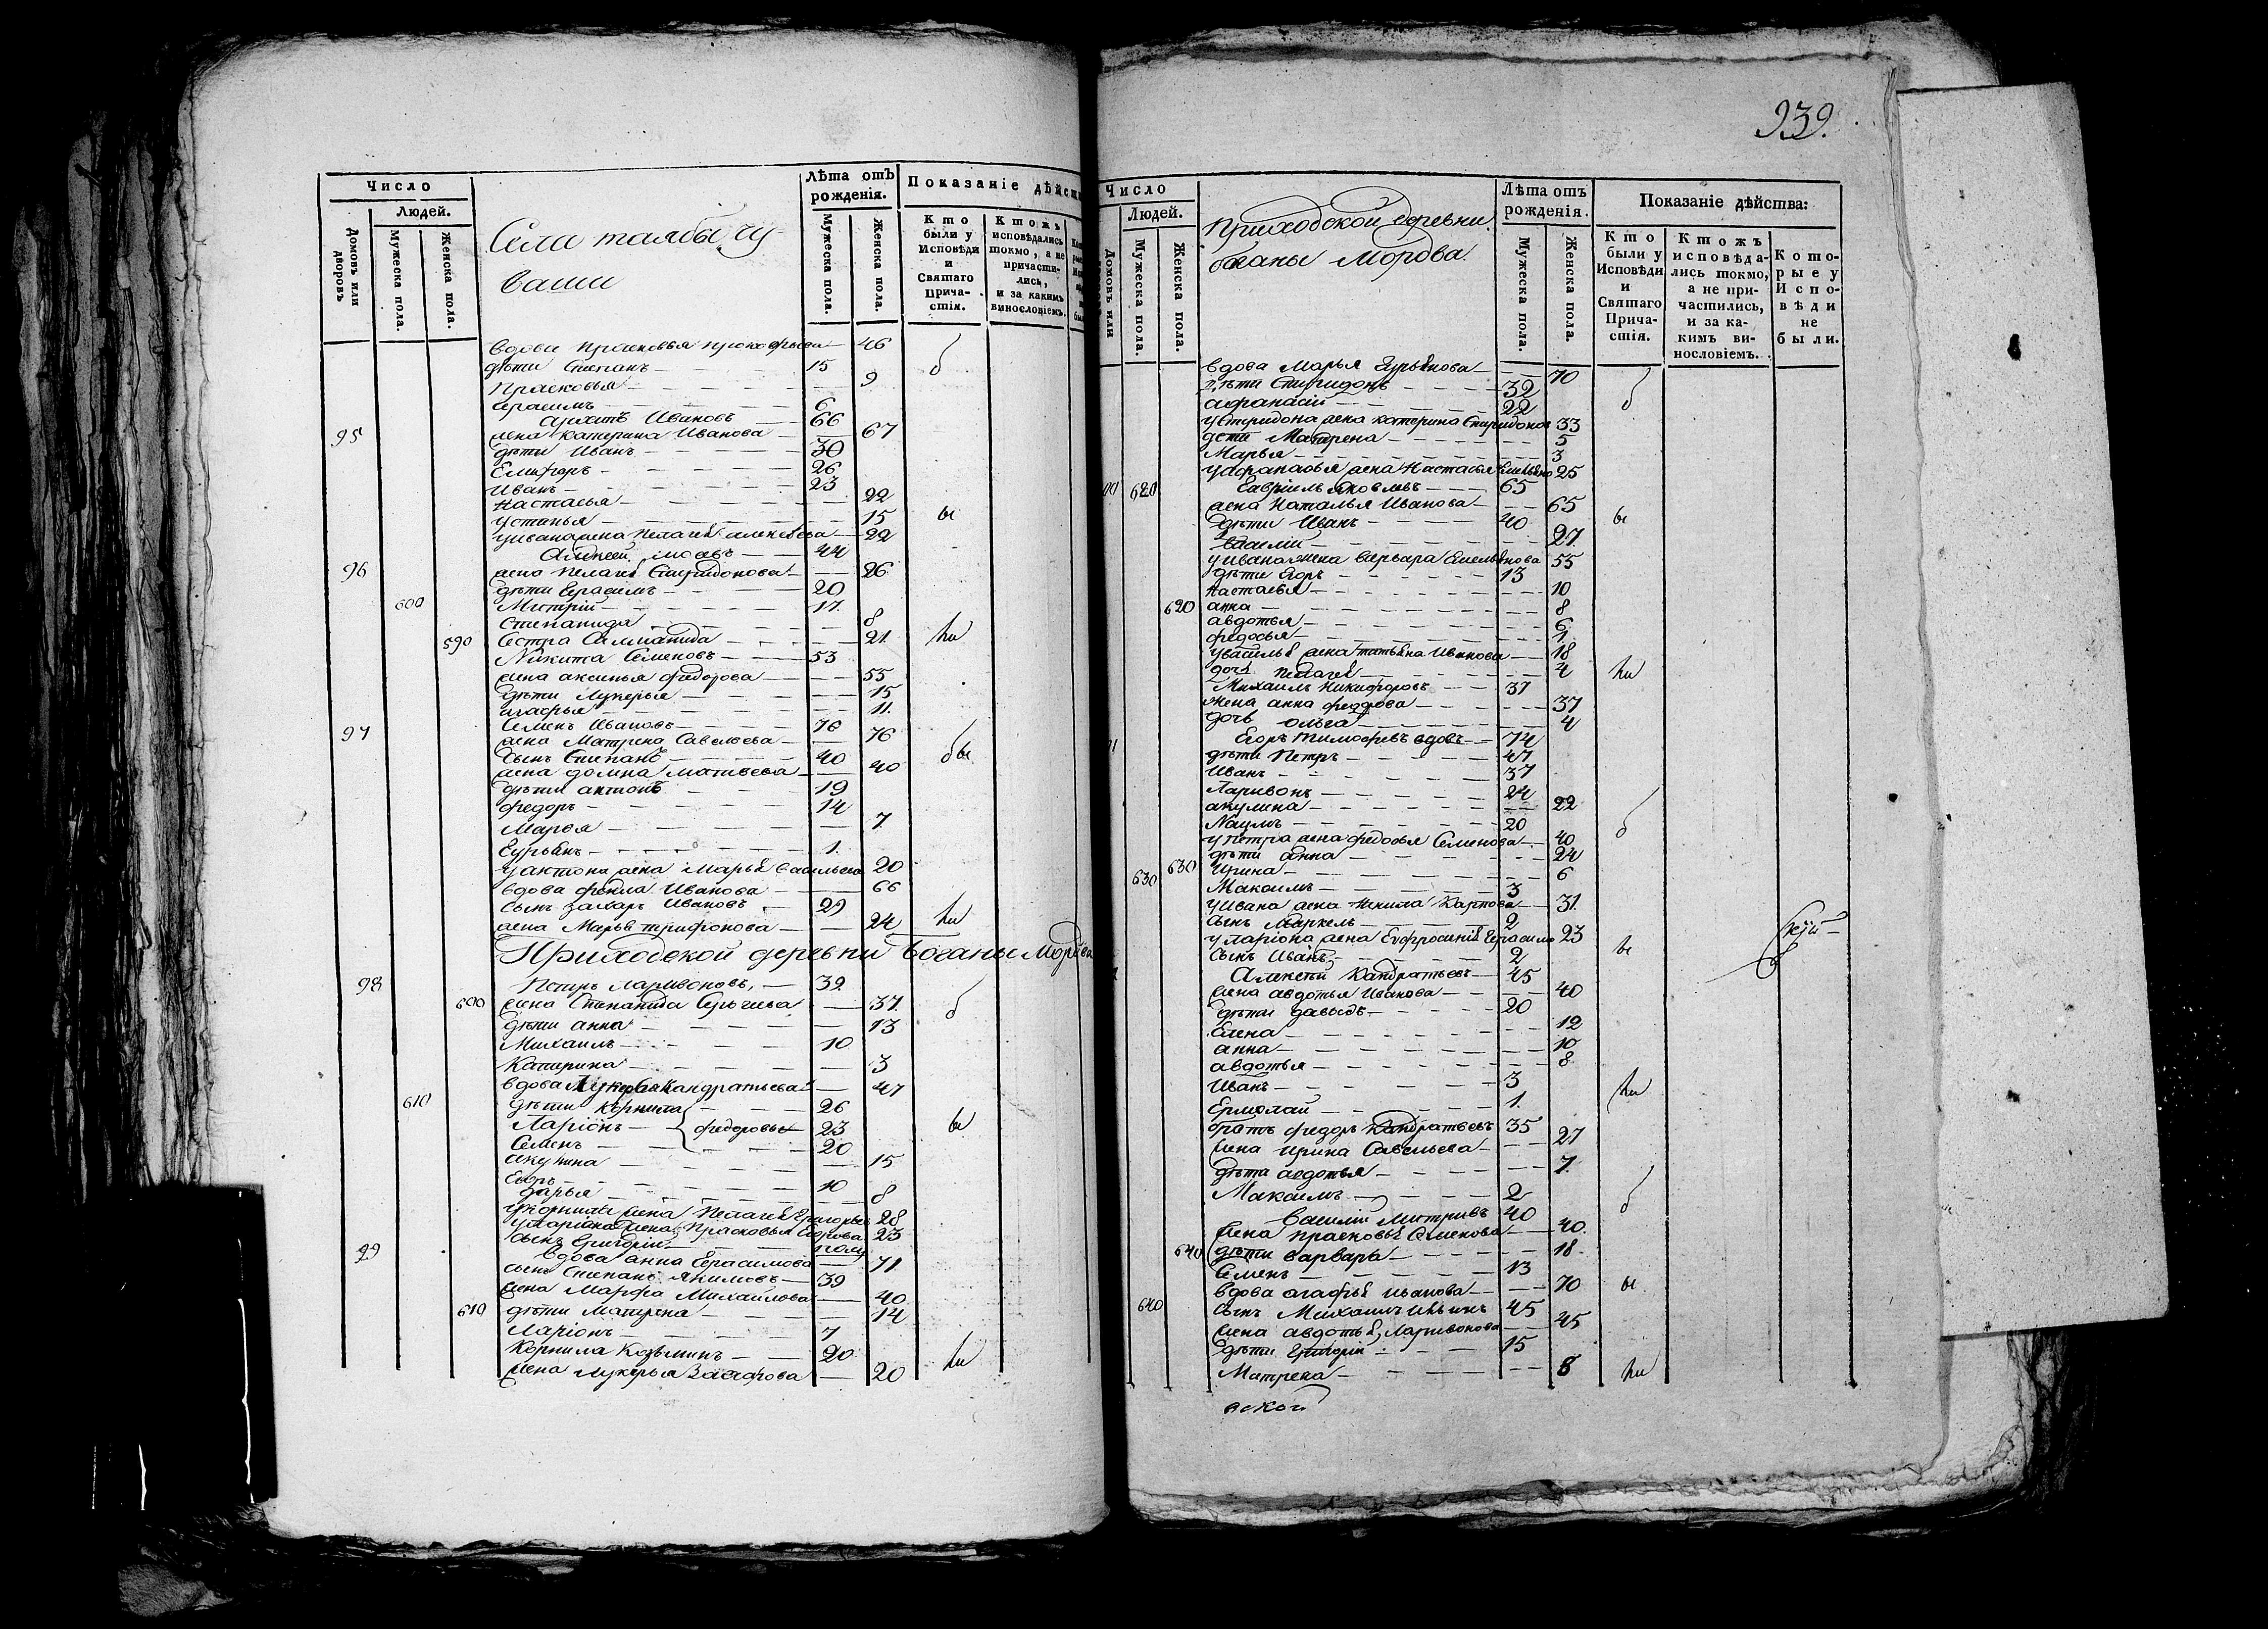 Число
Людей.
Домовъ или дворовъ
Мужеска пола.
Женска пола.
Села талбы чу-
ваши
Лѣта отъ рожденія.
Мужеска пола.
Женска пола.
Показаніе дѣйст
Кто были у Исповѣди и Святаго Прича- стія.
Ктожъ исповѣдались токмо, а не причасти- лись, и за какимъ винословіемъ.
вдова Прасковья прокофьева — 46
дѣти Степанъ — 15
Прасковья — 9
Герасимъ — 6
95 Архипъ Ивановъ — 66
жена катерина Иванова — 67
дѣти Иванъ — 30
Елифоръ — 26
Иванъ — 23
Настасья — 22
Устинья — 15
у ивана жена Пелагея алексѣева — 22
96 Алексей — 44
жена пелагея Спиридонова — 26
дѣти Герасимъ — 20
600 Митрій — 17
Степанида — 8
590 Сестра — 21
Никита Семеновъ — 53
жена аксинья федорова — 55
дѣти Лукерья — 15
агафья — 11
97 Семенъ Ивановъ — 76
жена Матрена Савельева — 76
Сынъ Степанъ — 40
жена домна матвеева — 40
дѣти антонъ — 19
федоръ — 14
Марья — 7
Гурьянъ — 1
у антона жена Марья васильева 20
вдова фекла Иванова — 66
сынъ захаръ Ивановъ — 29
жена Марья трифонова — 24
Приходской деревни боганы Мордва
98 Петръ Ларивоновъ — 39
600 жена Степанида Сергиева — 37
дѣти анна — 13
Михаилъ — 10
Катерина — 3
вдова Лукерья Кандратьева — 47
610 дѣти Корнила — 26
Ларіонъ — федоровы 23
Семенъ — 20
акулина — 15
Егоръ — 10
дарья — 8
у корнила жена Пелагея Григорьев 28
у ларіона жена Прасковья Егорова 23
сынъ Григорій — полу
99 вдова анна Герасимова — 71
сынъ Степанъ Якимовъ — 39
жена Марфа Михайлова — 40
610 дѣти Матрена — 14
Ларіонъ — 7
Корнила Козьминъ — 20
жена Лукерья Захарова — 20
939.
Число
Людей.
Домовъ или
Мужеска пола.
Женска пола.
Приходской деревни
боганы Мордва.
Лѣта отъ рожденія.
Мужеска пола.
Женска пола.
Показаніе дѣйства:
Кто были у Исповѣди и Святаго Прича- стія.
Ктожъ исповѣда- лись токмо, а не при- частились, и за ка- кимъ ви- нословіемъ.
Кото- рые у Испо- вѣди не были.
вдова Марья Гурьянова — 70
дѣти Спиридонъ — 32
афанасій — 22
у Спиридона жена катерина Спиридонов 33
дети Матрена — 5
Марья — 3
у афанасья жена Настасья Емельяно 25
620 Гавріилъ Яковлевъ — 65
жена Наталья Иванова — 65
дѣти Иванъ — 40
василій — 27
у ивана жена варвара Емельянова 55
дѣти Егоръ — 13
Настасья — 10
620 анна — 8
авдотья — 6
федосья — 1
у василья жена татьяна Иванова — 18
дочь Пелагея — 4
Михаилъ Никифоровъ — 37
жена анна федорова — 37
дочь ольга — 4
Егоръ Тимофѣевъ вдовъ — 74
дѣти Петръ — 47
Иванъ — 37
Ларивонъ — 24
акулина — 22
Наумъ — 20
у петра жена федосья Семенова — 40
дѣти анна — 24
630 Ирина — 6
630 Максимъ — 3
у ивана жена Карпова — 31
сынъ Маркелъ — 2
у ларіона жена Евфросинія Герасимо 23
сынъ Иванъ — 2
Алексѣй Кандратьевъ — 45
жена авдотья Иванова — 40
дѣти давыдъ — 20
Елена — 12
анна — 10
авдотья — 8
Иванъ — 3
Ермолай — 1
братъ федоръ Кандратьевъ 35
жена ирина Савельева — 27
дѣти авдотья — 7
Максимъ — 2
василій Митривъ 40
жена Прасковья Семенова — 40
640 дѣти варвара — 18
Семенъ — 13
вдова агафья иванова — 70
640 сынъ Михаилъ Ильинъ 45
жена авдотья Ларивонова — 45
дѣти Григорій — 15
Матрена — 8
вской